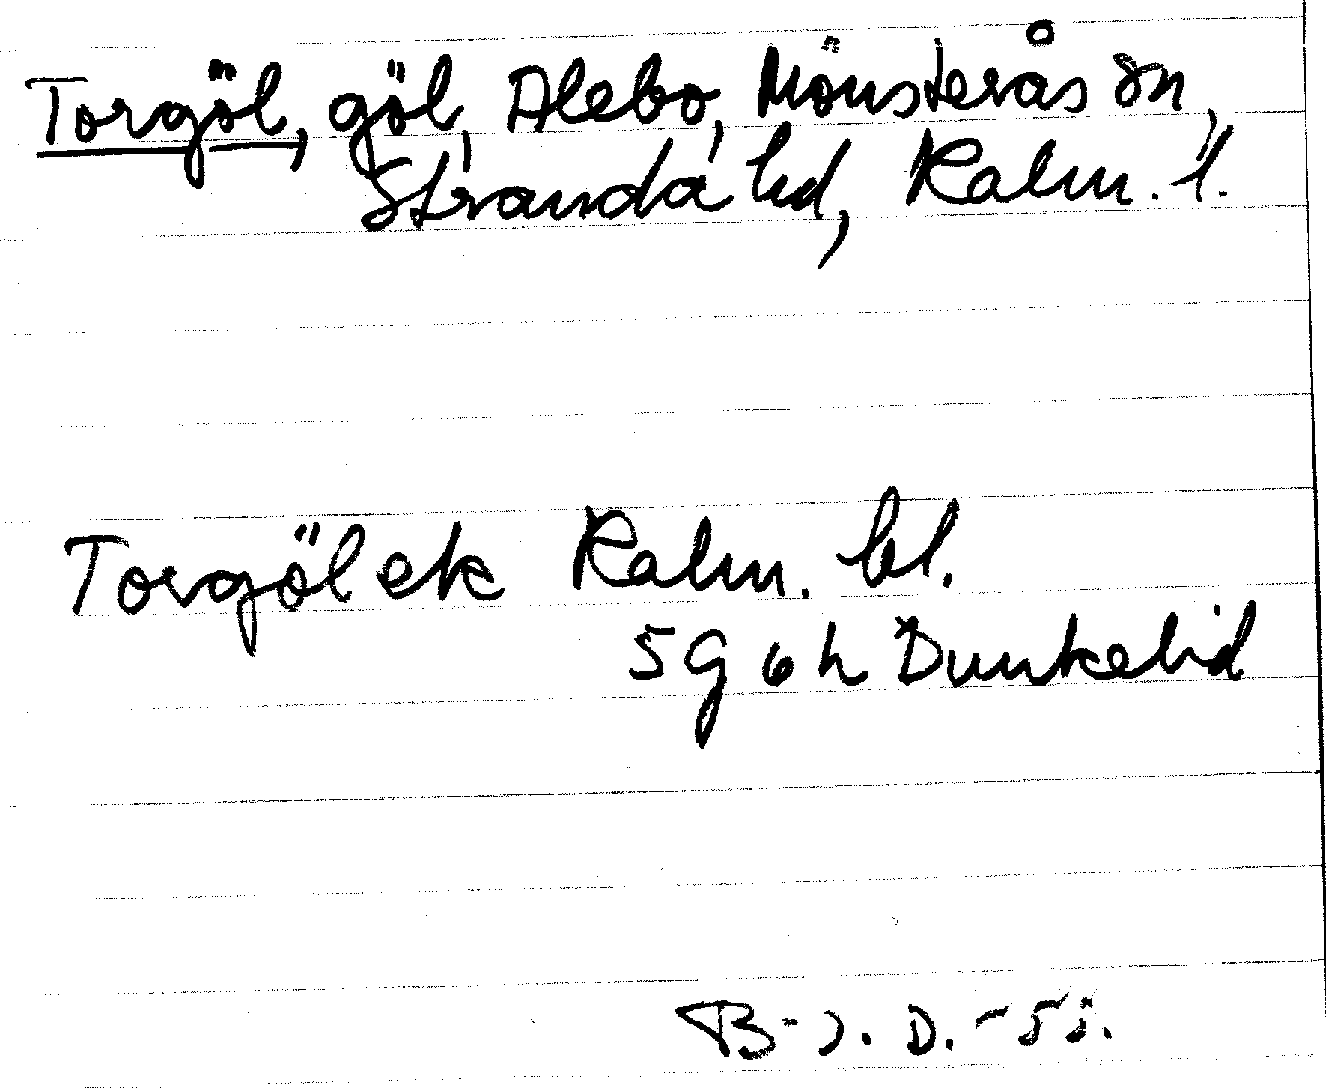 Torgöl, göl, Alebo, Mönsterås sn,
Stranda hd, Kalm. l.
Torgöl ek Kalm. bl.
5 G 6 h Dunkebid
B-J. D. -55.